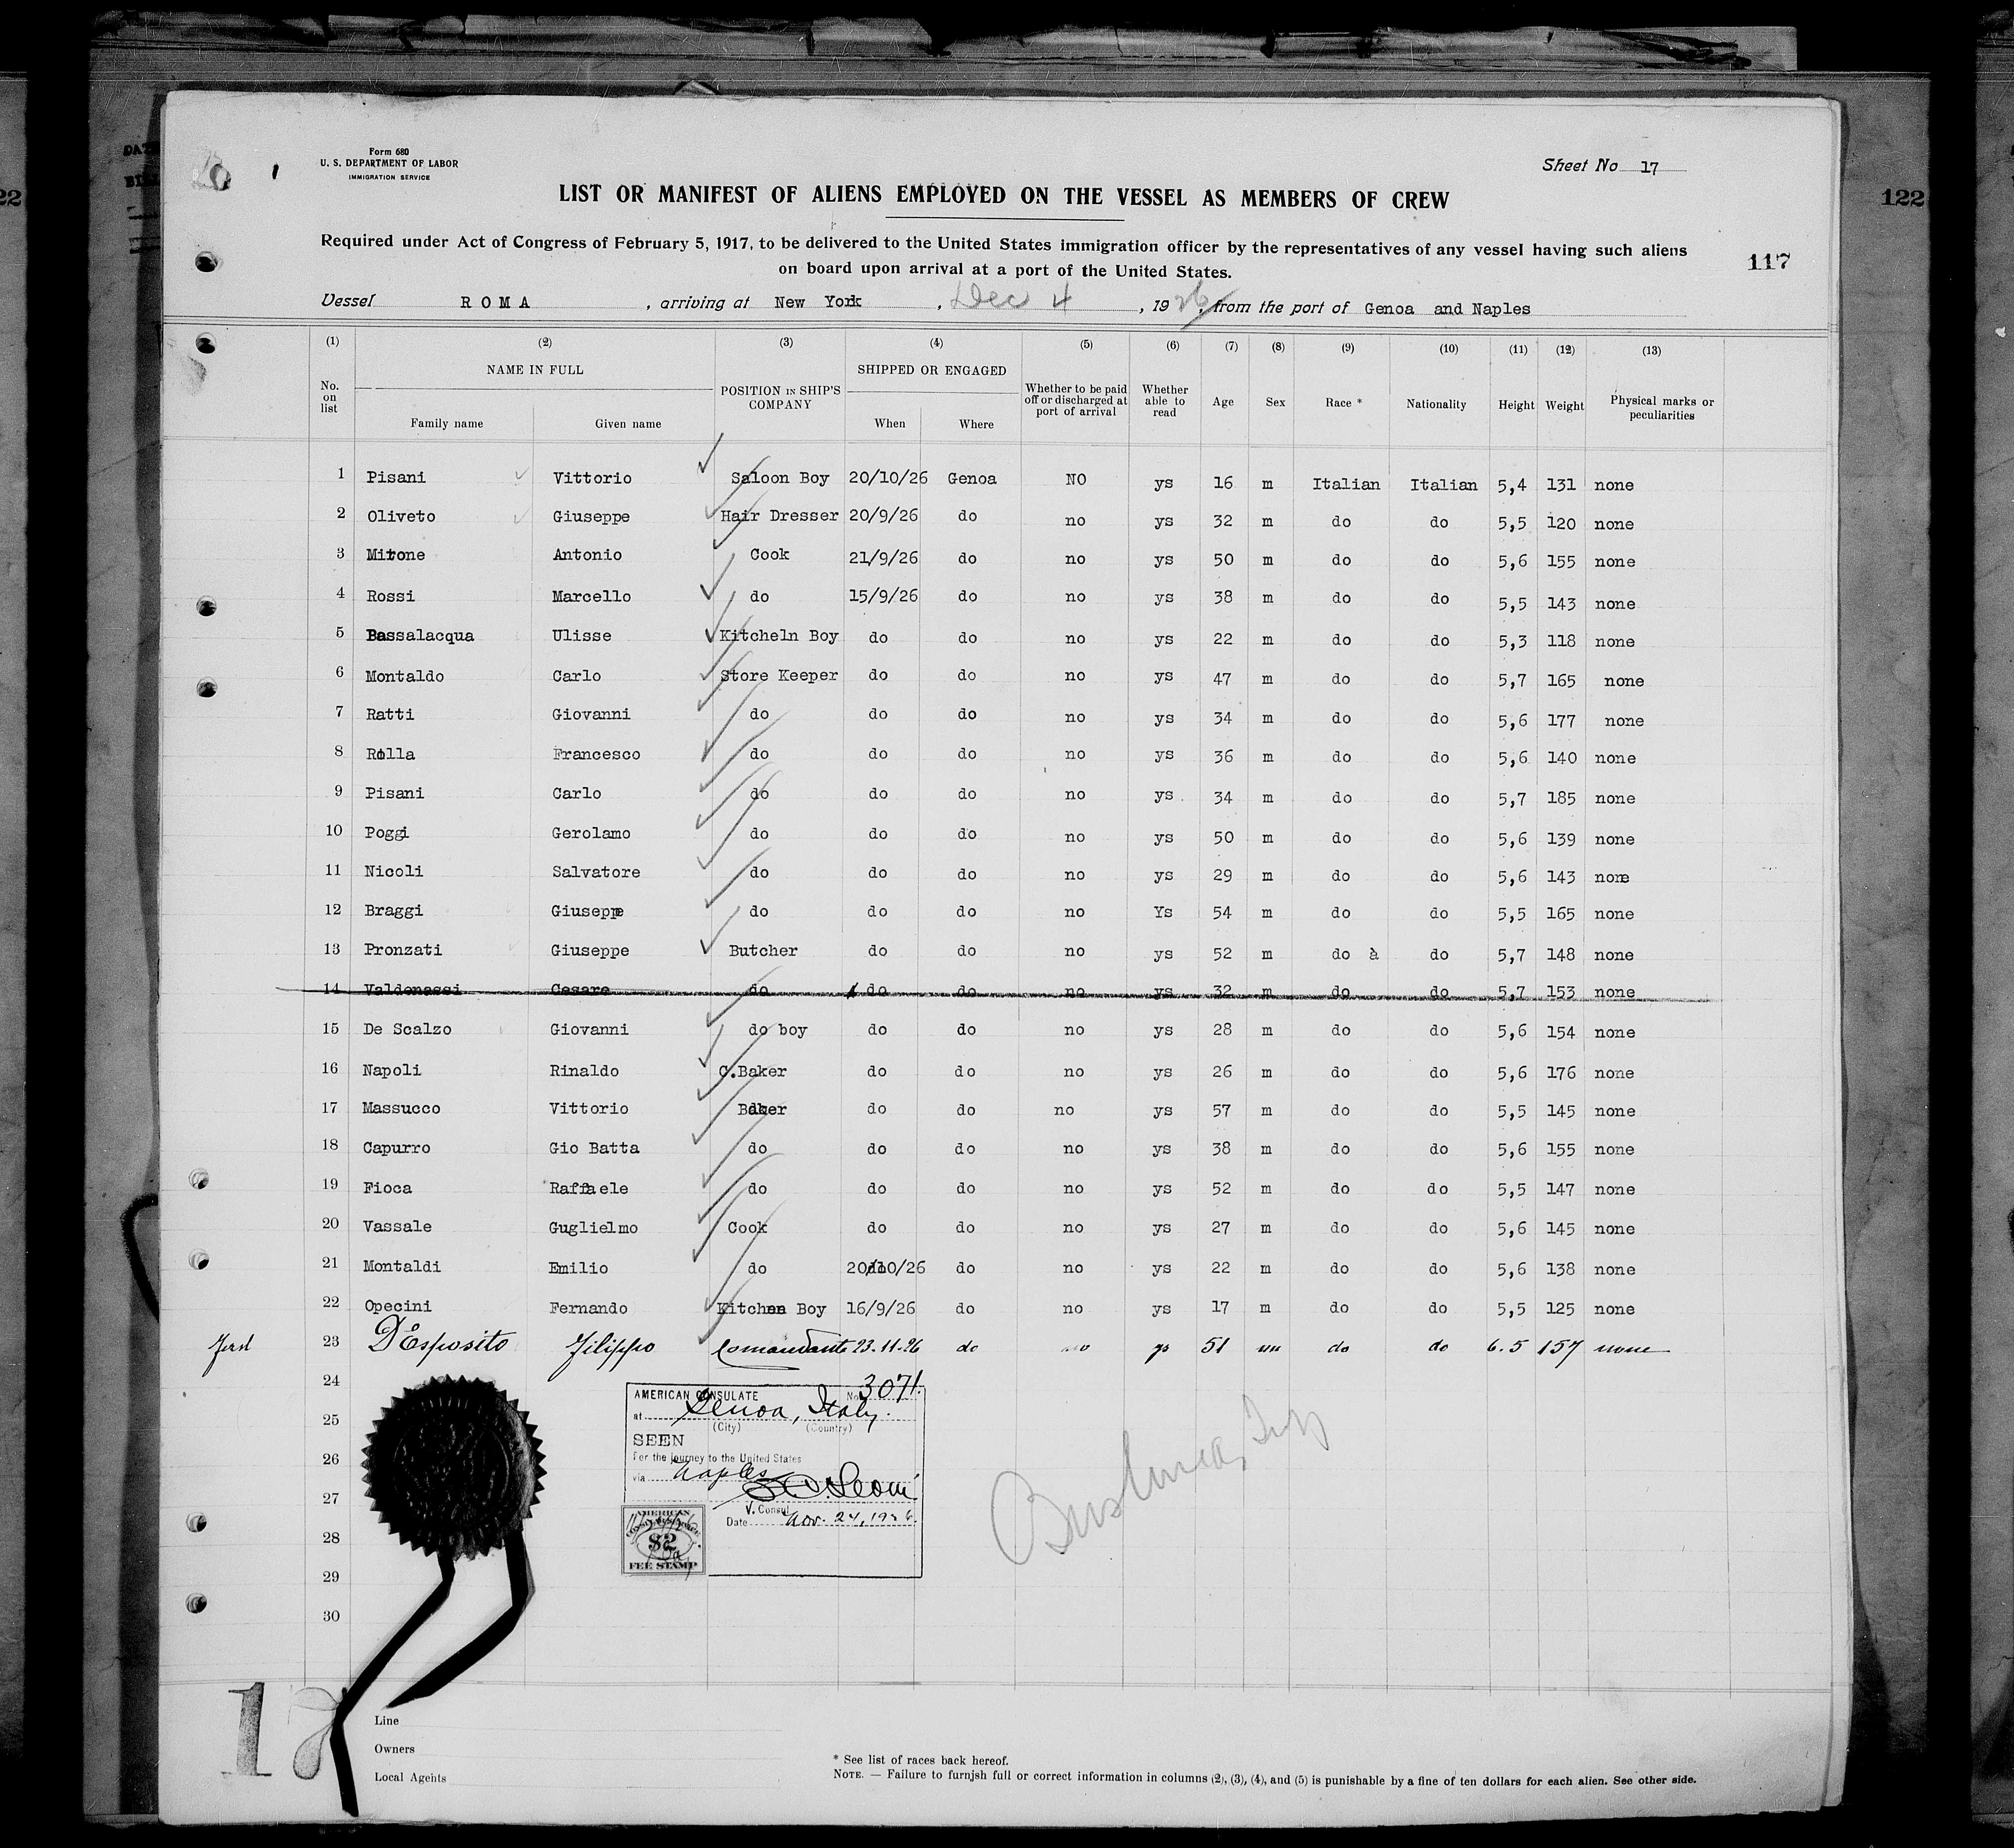 Form 680
U. S. DEPARTMENT OF LABOR
IMMIGRATION SERVICE
Sheet No 17
LIST OR MANIFEST OF ALIENS EMPLOYED ON THE VESSEL AS MEMBERS OF CREW
Required under Act of Congress of February 5, 1917, to be delivered to the United States immigration officer by the representatives of any vessel having such aliens
on board upon arrival at a port of the United States.
117
122
Vessel ROMA , arriving at New York , Dec 4 , 1926, from the port of Genoa and Naples
(1) (2) (3) (4) (5) (6) (7) (8) (9) (10) (11) (12) (13)
No. on list NAME IN FULL Family name Given name POSITION IN SHIP'S COMPANY SHIPPED OR ENGAGED When Where Whether to be paid off or discharged at port of arrival Whether able to read Age Sex Race * Nationality Height Weight Physical marks or peculiarities
1 Pisani Vittorio Saloon Boy 20/10/26 Genoa NO ys 16 m Italian Italian 5,4 131 none
2 Oliveto Giuseppe Hair Dresser 20/9/26 do no ys 32 m do do 5,5 120 none
3 Mitone Antonio Cook 21/9/26 do no ys 50 m do do 5,6 155 none
4 Rossi Marcello do 15/9/26 do no ys 38 m do do 5,5 143 none
5 Bassalacqua Ulisse Kitcheln Boy do do no ys 22 m do do 5,3 118 none
6 Montaldo Carlo Store Keeper do do no ys 47 m do do 5,7 165 none
7 Ratti Giovanni do do do no ys 34 m do do 5,6 177 none
8 Rolla Francesco do do do no ys 36 m do do 5,6 140 none
9 Pisani Carlo do do do no ys 34 m do do 5,7 185 none
10 Poggi Gerolamo do do do no ys 50 m do do 5,6 139 none
11 Nicoli Salvatore do do do no ys 29 m do do 5,6 143 none
12 Braggi Giuseppe do do do no Ys 54 m do do 5,5 165 none
13 Pronzati Giuseppe Butcher do do no ys 52 m do à do 5,7 148 none
14 Valdenassi Cesare do do do no ys 32 m do do 5,7 153 none
15 De Scalzo Giovanni do boy do do no ys 28 m do do 5,6 154 none
16 Napoli Rinaldo C.Baker do do no ys 26 m do do 5,6 176 none
17 Massucco Vittorio Baker do do no ys 57 m do do 5,5 145 none
18 Capurro Gio Batta do do do no ys 38 m do do 5,6 155 none
19 Fioca Raffaele do do do no ys 52 m do do 5,5 147 none
20 Vassale Guglielmo Cook do do no ys 27 m do do 5,6 145 none
21 Montaldi Emilio do 20/10/26 do no ys 22 m do do 5,6 138 none
22 Opecini Fernando Kitchen Boy 16/9/26 do no ys 17 m do do 5,5 125 none
23 D'Esposito Filippo Comandante 23.11.26 do no ys 51 m do do 6.5 157 none
24
25
26
27
28
29
30
AMERICAN CONSULATE No. 3071.
at Genoa, Italy.
(City) (Country)
SEEN
For the journey to the United States
via Naples
V. Consul
Date Nov. 24, 1926.
AMERICAN
$2
FEE STAMP
17
Line
Owners
Local Agents
* See list of races back hereof.
NOTE. — Failure to furnish full or correct information in columns (2), (3), (4), and (5) is punishable by a fine of ten dollars for each alien. See other side.